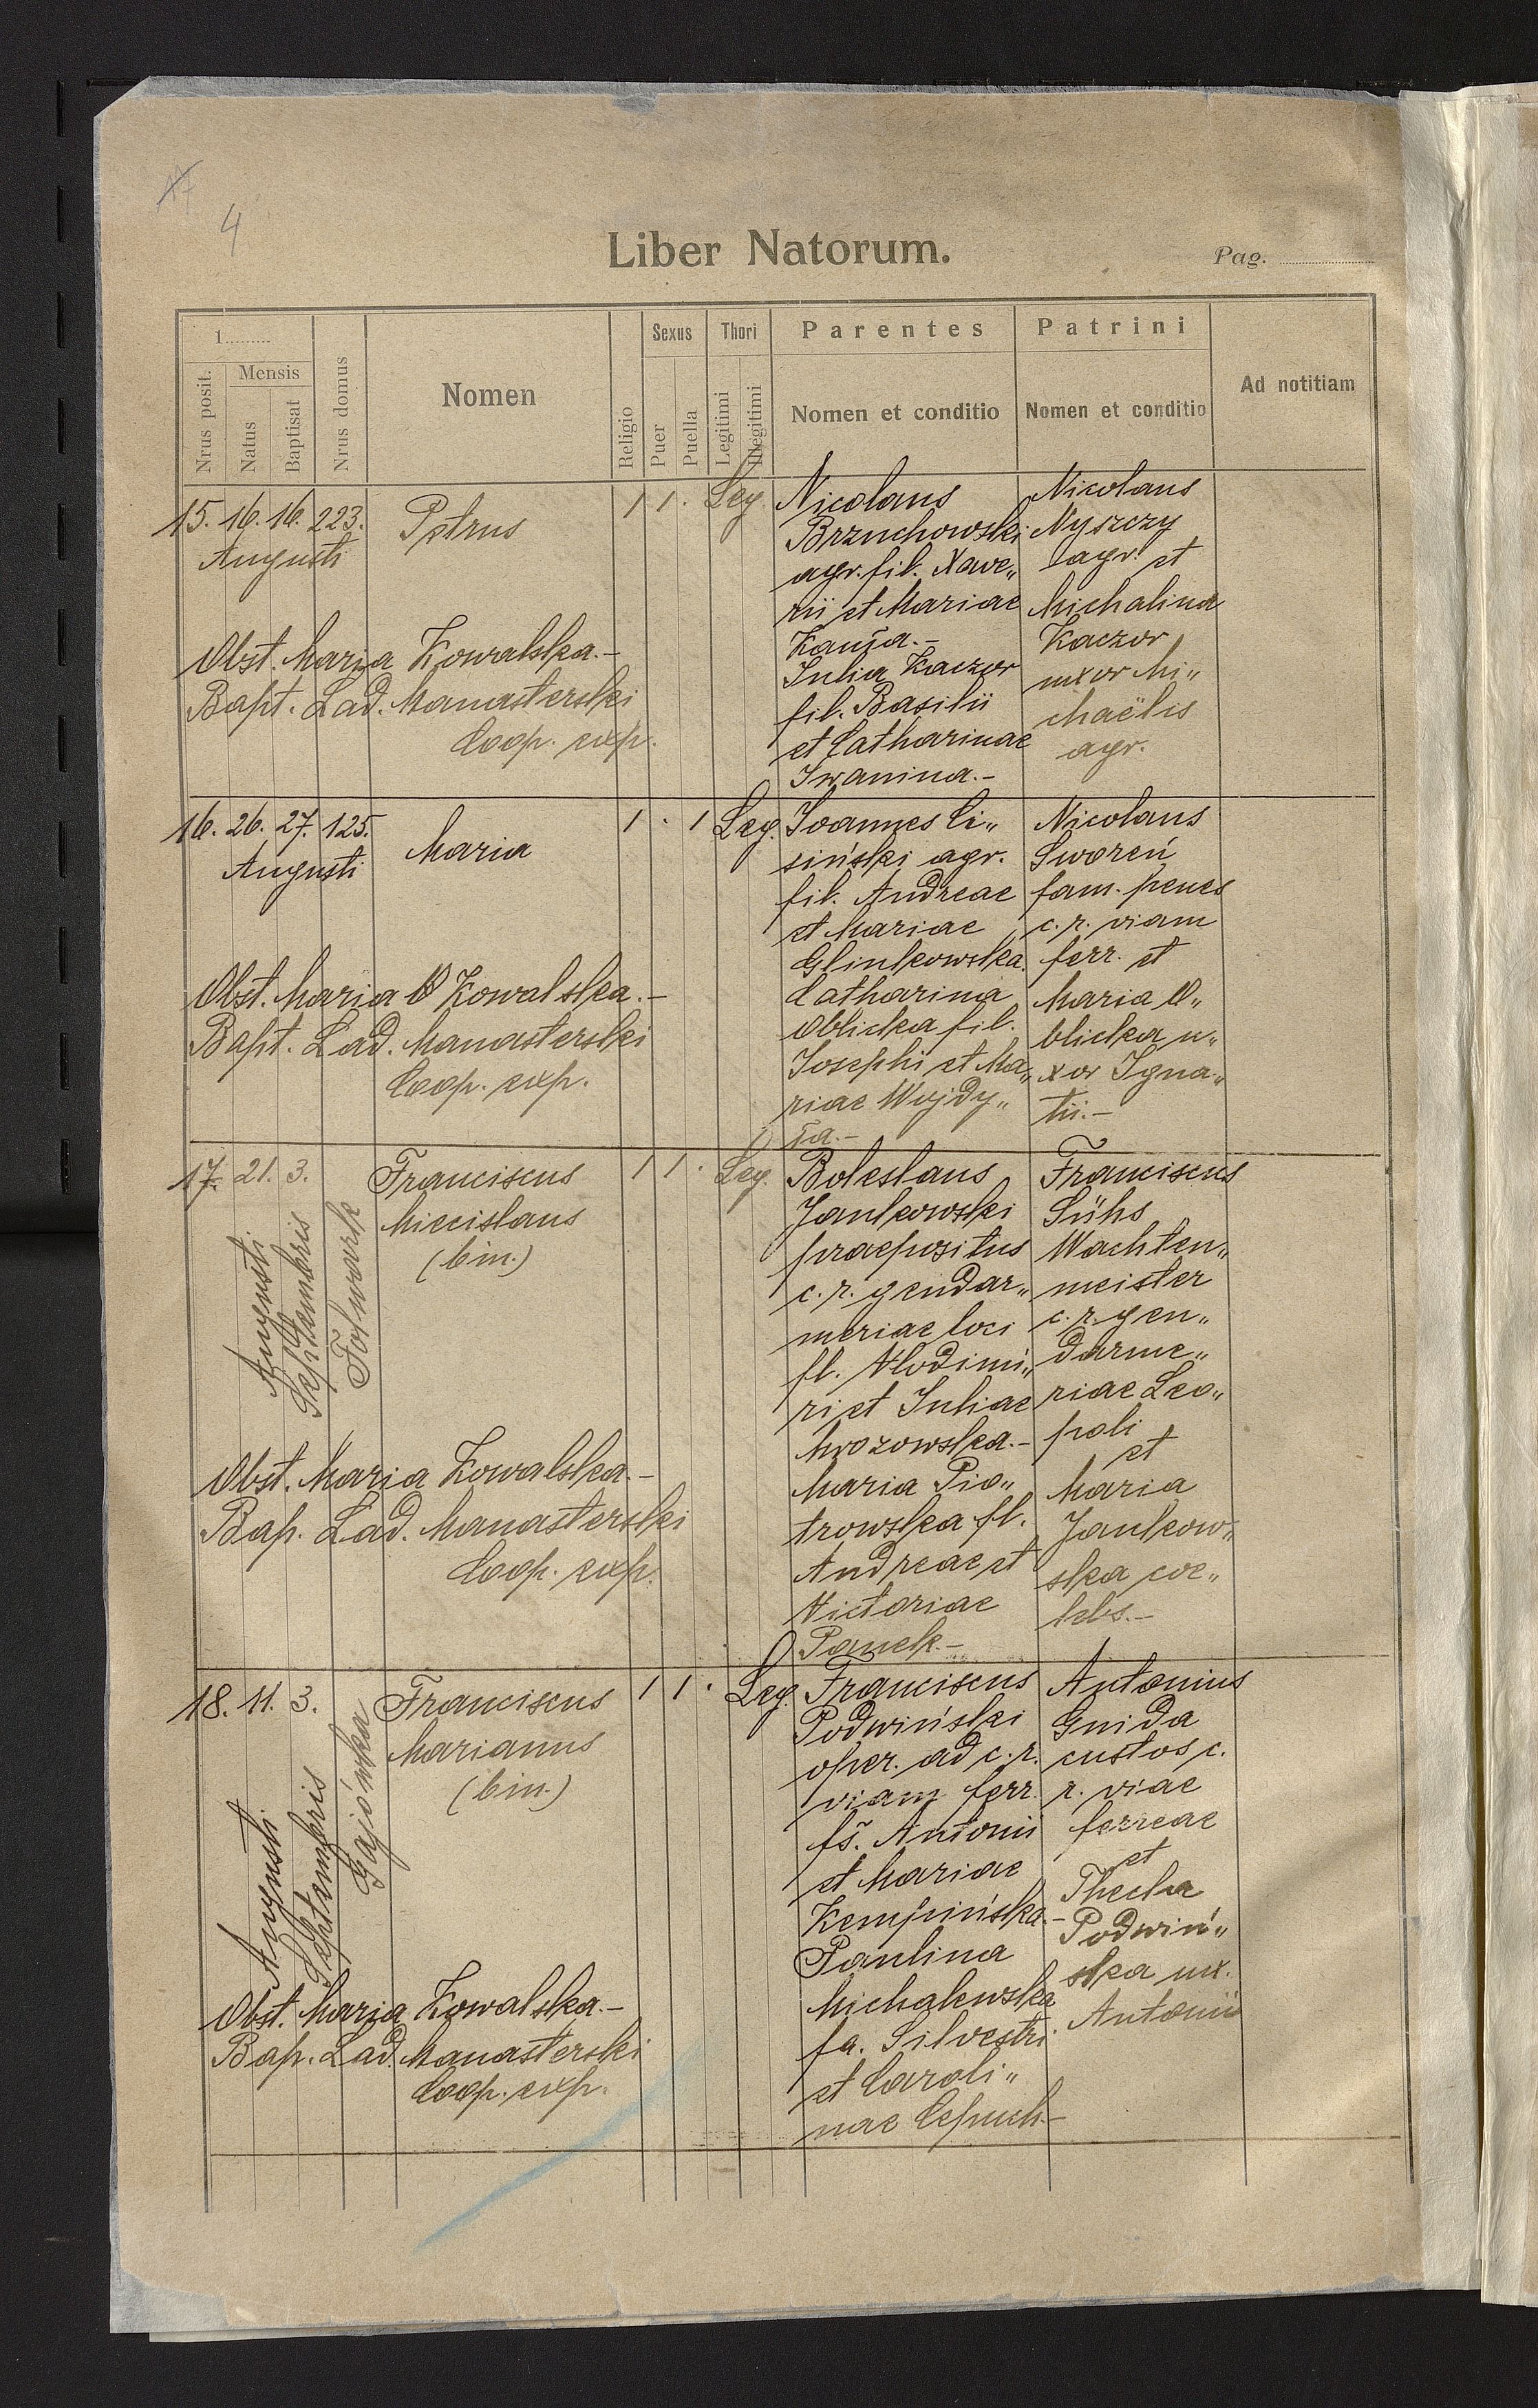 4
Liber Natorum.
Pag.
1
Mensis
Nrus posit.
Natus
Baptisat
Nrus domus
Nomen
Religio
Sexus
Puer
Puella
Thori
Legitimi
Illegitimi
Parentes
Nomen et conditio
Patrini
Nomen et conditio
Ad notitiam
15. 16. 16. 223.
Augusti
Petrus
1 1 . Leg.
Nicolaus
Brzuchowski
agr. fil. Xawe„
rii et Mariae
Kania.-
Julia Kaczor
fil. Basilii
et Catharinae
Iwanina.-
Nicolaus
Nyszczy
agr. et
Michalina
Kaczor
uxor Mi„
chaëlis
agr.
Obst. Maria Kowalska.-
Bapt. Lad. Manasterski
Coop. exp.
16. 26. 27. 125.
Augusti
Maria
1 . 1 Leg.
Joannes Ci„
siński agr.
fil. Andreae
et Mariae
Glinkowska.
Catharina
Oblicka fil.
Josephi et Ma„
riae Wujdy„
ła.-
Nicolaus
Sworeń
fam. penes
c. r. viam
ferr. et
Maria O„
blicka u„
xor Igna„
tii.-
Obst. Maria Kowalska.-
Bapt. Lad. Manasterski
Coop. exp.
17. 21. 3.
Augusti
Septembris
Folwark
Franciscus
Miecislaus
(bin.)
1 1 . Leg.
Boleslaus
Jankowski
praepositus
c. r. gendar„
meriae loci
fl. Vlodimi„
ri et Juliae
Mrozowska.-
Maria Pio„
trowska fl.
Andreae et
Victoriae
Panek.-
Franciscus
Sühs
Wachten„
meister
c. r. gen„
darme„
riae Leo„
poli
et
Maria
Jankow„
ska coe„
lebs.-
Obst. Maria Kowalska.-
Bap. Lad. Manasterski
Coop. exp.
18. 11. 3.
Augusti
Septembris
Gajówka
Franciscus
Marianus
(bin.)
1 1 . Leg.
Franciscus
Podwiński
oper. ad c. r.
viam ferr.
fs. Antonii
et Mariae
Kempińska.-
Paulina
Michalewska
fa. Silvestri
et Caroli„
nae Cepuch-
Antonius
Gnida
custos c.
r. viae
ferreae
et
Thecla
Podwiń„
ska ux.
Antonii
Obst. Maria Kowalska.-
Bap. Lad. Manasterski
Coop. exp.